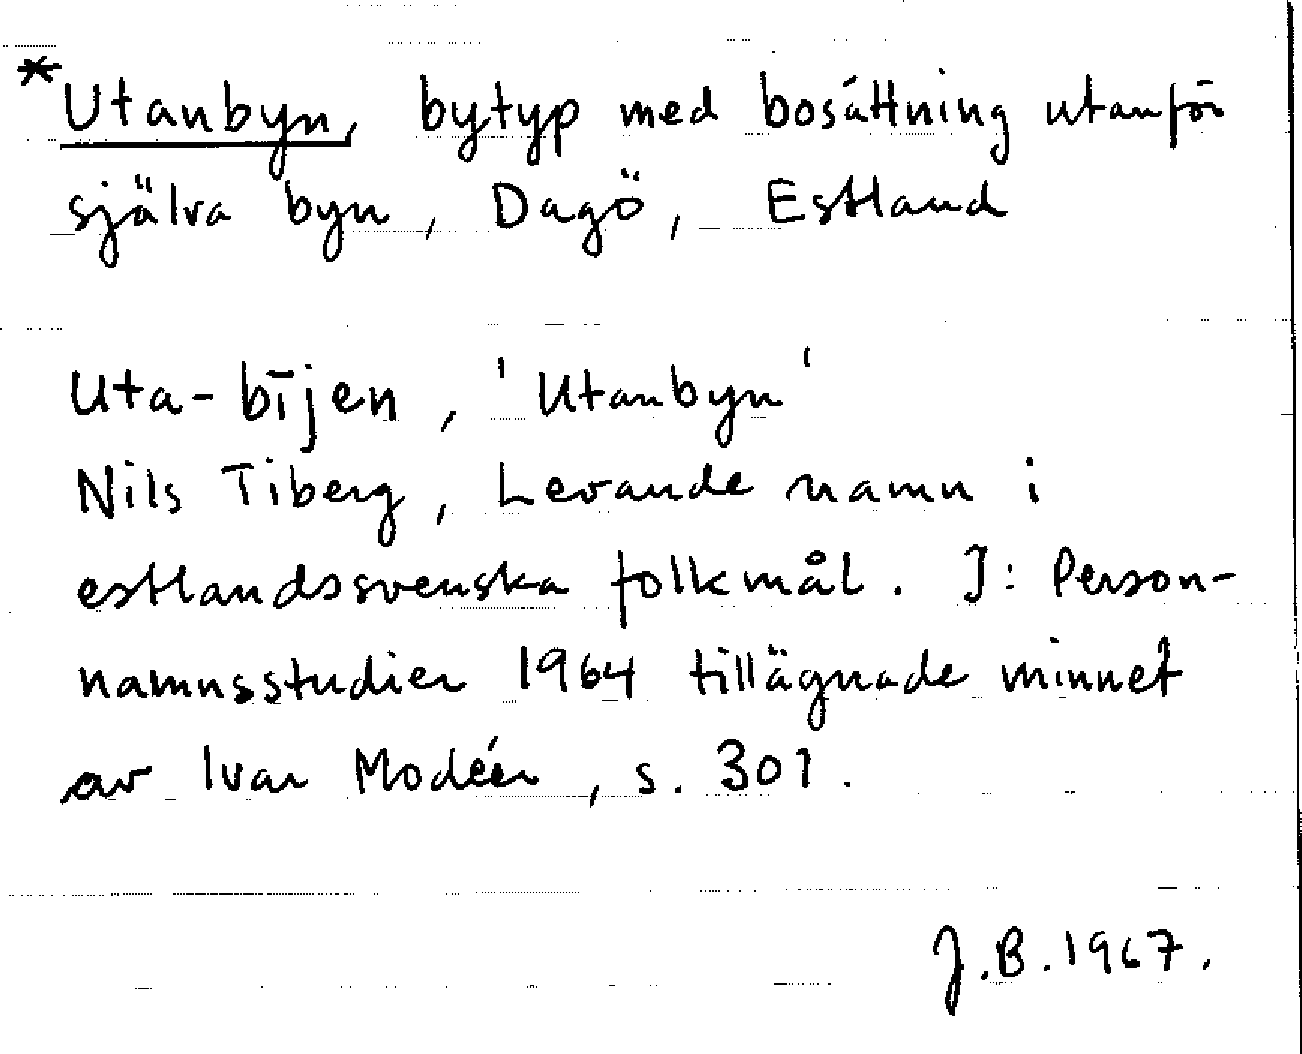 *Utanbyn, bytyp med bosättning utanför
själva byn, Dagö, Estland
Uta-bījen, 'Utanbyn'
Nils Tiberg, Levande namn i
estlandssvenska folkmål. I: Person-
namnsstudier 1964 tillägnade minnet
av Ivar Modéer, s. 301.
J.B. 1967.